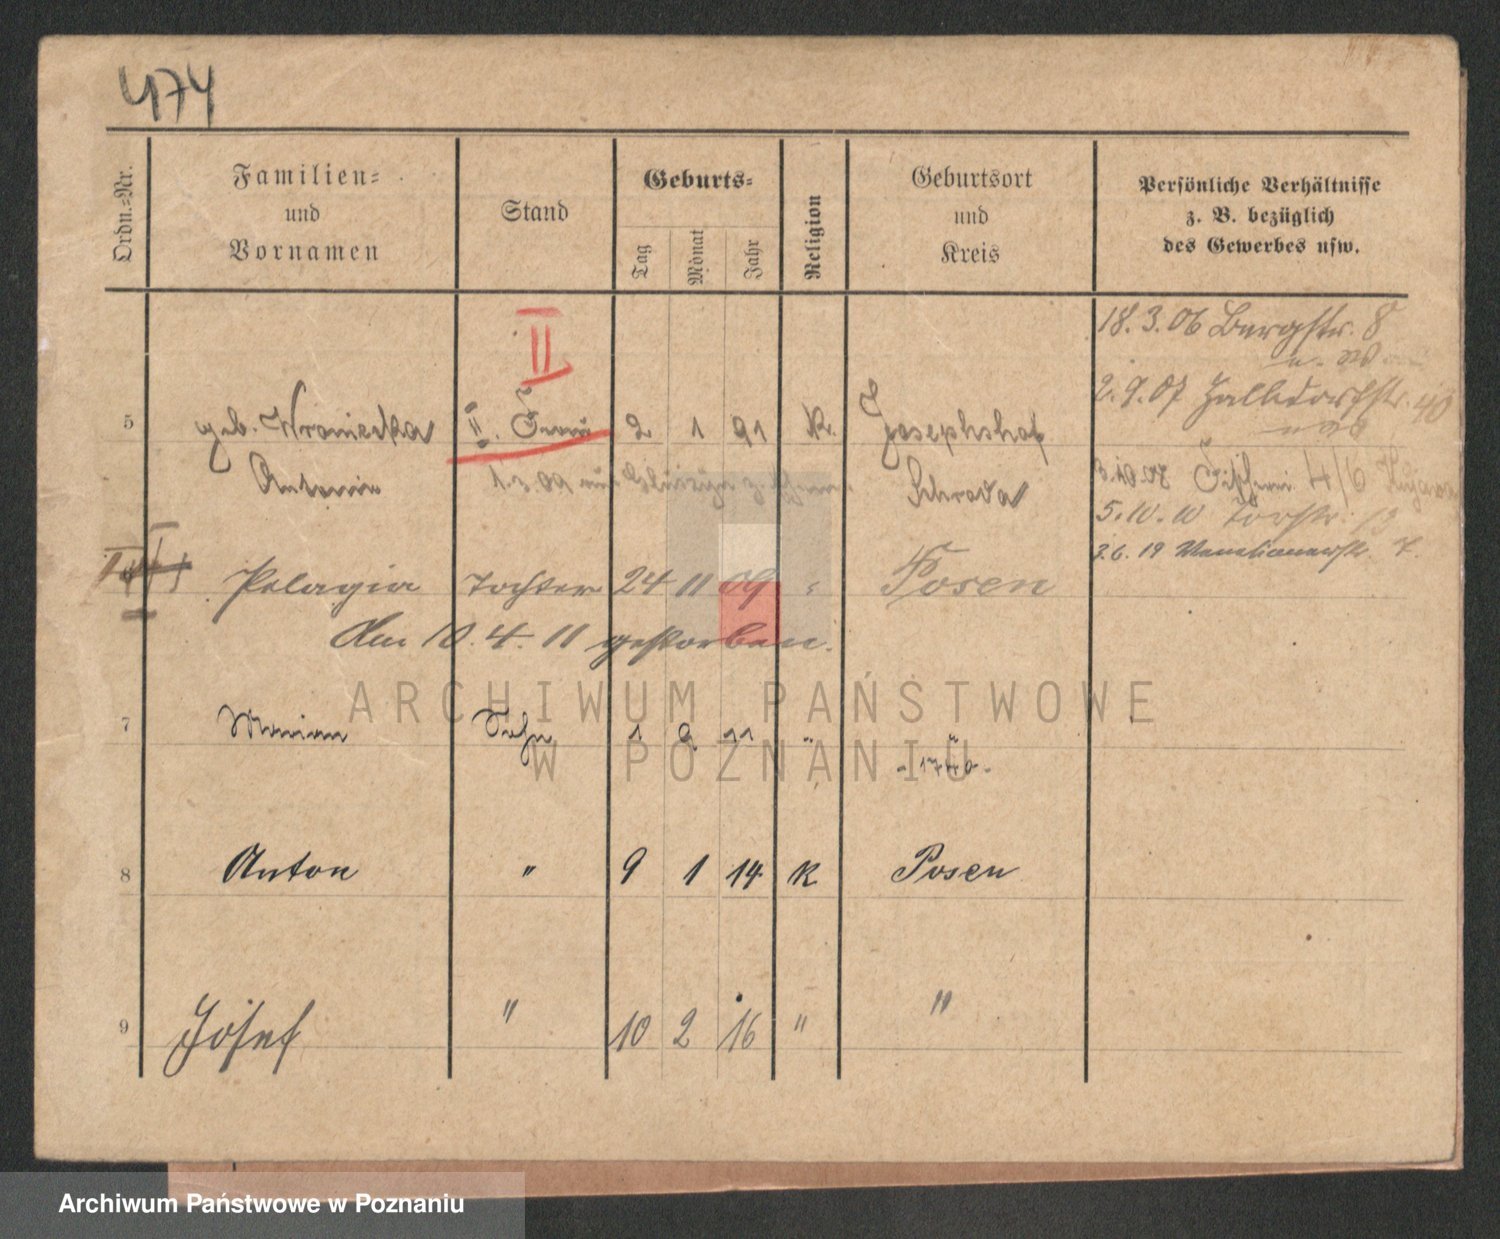 474
Ordn.=Nr.
Familien=
und
Vornamen
Stand
Geburts=
Tag
Monat
Jahr
Religion
Geburtsort
und
Kreis
Persönliche Verhältnisse
z. B. bezüglich
des Gewerbes usw.
II
18.3.06 Bergstr. 8
2.9.07
40
5 geb. Wroniecka II. Frau 2 1 91 K. Josephshof
Antonie
Schroda
5.10.10 Torstr. 13
Pelagia Tochter 24 11 09 " Posen
3.6.19 Venetianerstr. 7.
Am 10.4.11 gestorben.
7 Marian Sohn 1 9 11 " "
8 Anton " 9 1 14 K Posen
9 Josef " 10 2 16 " "
ARCHIWUM PAŃSTWOWE
W POZNANIU
Archiwum Państwowe w Poznaniu